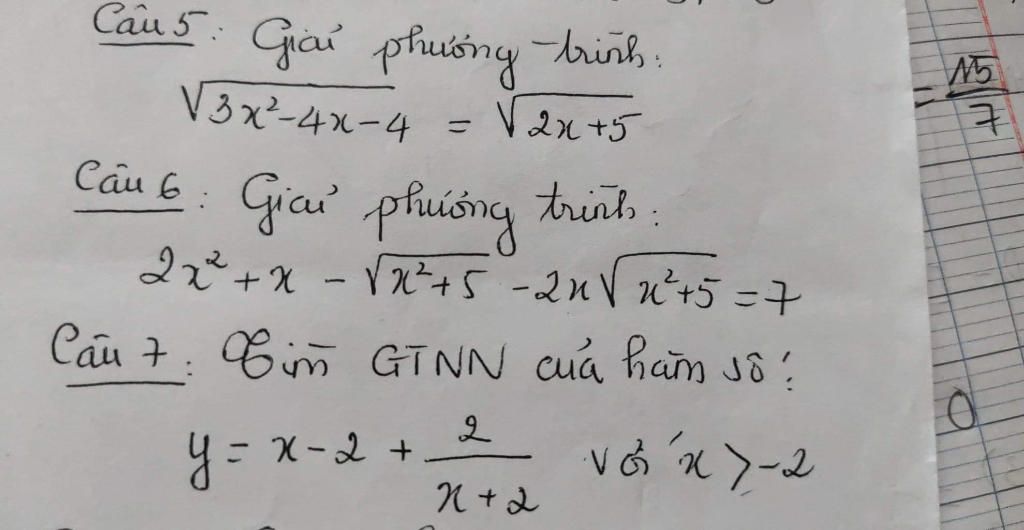 Câu 5: Giải phương trình:
√(3x²-4x-4) = √(2x+5)
Câu 6: Giải phương trình:
2x²+x - √(x²+5) - 2x√(x²+5) = 7
Câu 7: Tìm GTNN của hàm số:
y = x-2 + 2/(x+2) với x > -2
= √15/7
0